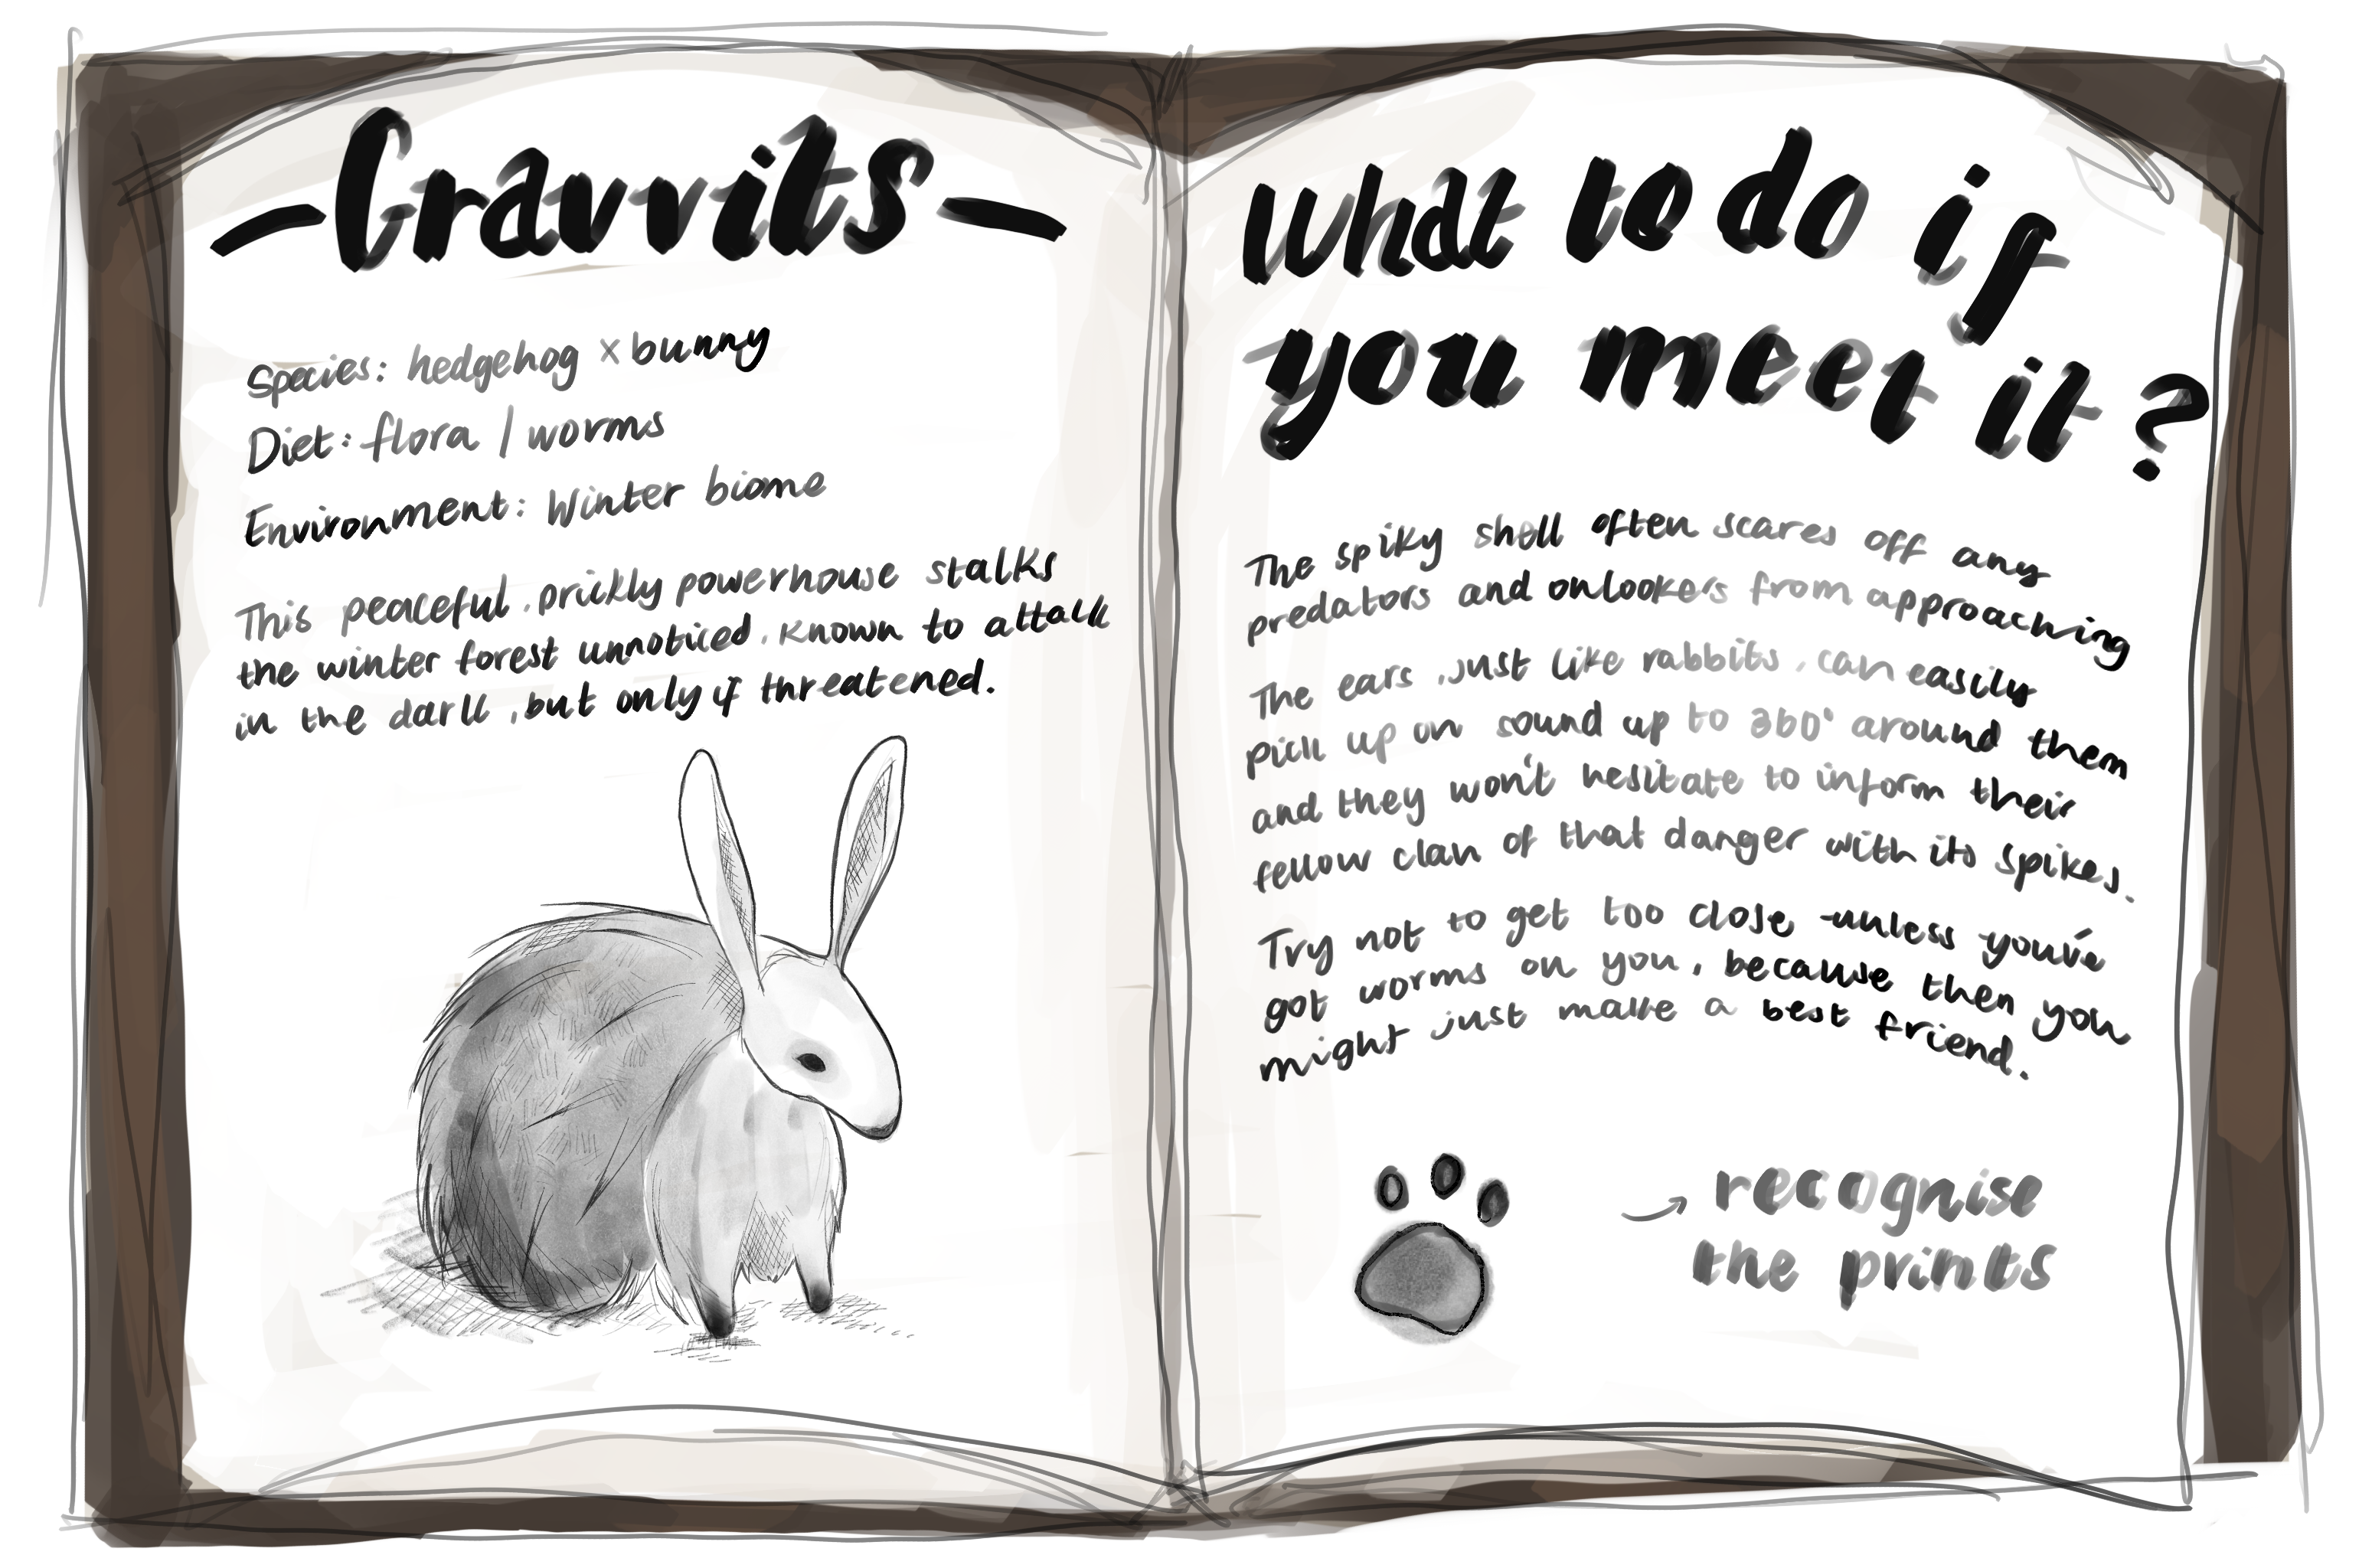 -Cravvits-
Species: hedgehog x bunny
Diet: flora / worms
Environment: Winter biome
This peaceful, prickly powerhouse stalks
the winter forest unnoticed, known to attack
in the dark, but only if threatened.
What to do if
you meet it?
The spiky shell often scares off any
predators and onlookers from approaching
The ears, just like rabbits, can easily
pick up on sound up to 360° around them
and they won't hesitate to inform their
fellow clan of that danger with its spikes.
Try not to get too close -unless you've
got worms on you, because then you
might just make a best friend.
recognise
the prints